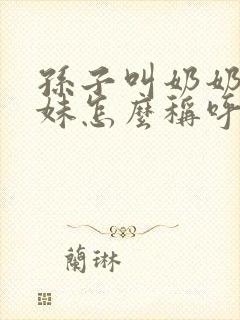 孫子叫奶奶
妹怎麼稱呼
蘭琳